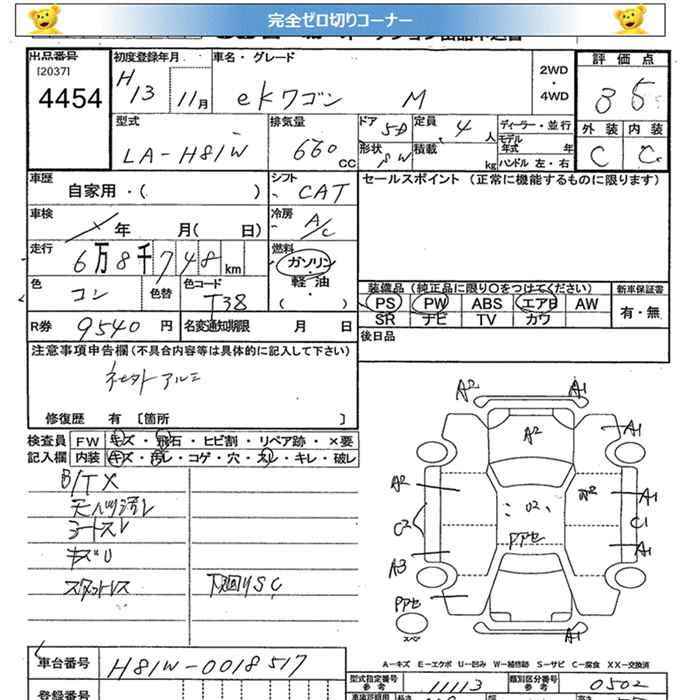 完全ゼロ切りコーナー
出品番号 初度登録年月 車名・グレード 2WD・4WD 評価点
[2037]
4454 H13 11月 ekワゴン M
型式 排気量 ドア 5D 定員 4人 ディーラー・並行
LA-H81W 660cc 形状 積載 kg モデル年式 年 ハンドル 左・右
外装 内装
C C
車歴 シフト セールスポイント (正常に機能するものに限ります)
自家用・( ) CAT
車検 年 月( 日) 冷房 A/C
走行 6万8千748km 燃料 ガソリン・軽油・( )
色 コン 色替 色コード T38
装備品 (純正品に限り○をつけてください) 新車保証書
PS PW ABS エアB AW 有・無
SR ナビ TV カワ
R券 9540円 名変通知期限 月 日
後日品
注意事項申告欄(不具合内容等は具体的に記入して下さい)
修復歴 有 [箇所 ]
検査員 FW キズ・飛石・ヒビ割・リペア跡・×要
記入欄 内装 キズ・汚レ・コゲ・穴・スレ・キレ・破レ
B/TX
シートスレ
キズU
スタットレス 下廻りSC
A2 A1
A2 A1
A2 U2 W2 A1
C2 C1
A3 A1
A1
スペ
A-キズ E-エクボ U-凹み W-補修跡 S-サビ C-腐食 XX-交換済
車台番号 H81W-0018517
型式指定番号 参考 11113 類別区分番号 参考 0502
登録番号